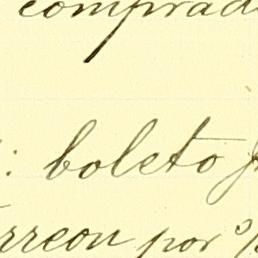 comprad
: boleto
rreon por